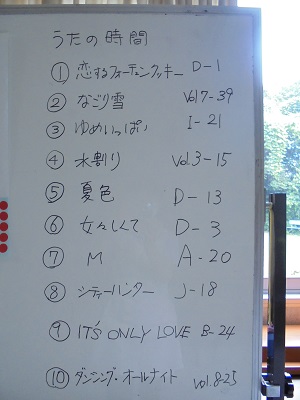 うたの時間
① 恋するフォーチュンクッキー D-1
② なごり雪 Vol7-39
③ ゆめいっぱい I-21
④ 水割り Vol.3-15
⑤ 夏色 D-13
⑥ 女々しくて D-3
⑦ M A-20
⑧ シティーハンター J-18
⑨ IT'S ONLY LOVE B-24
⑩ ダンシング・オールナイト vol.8-25